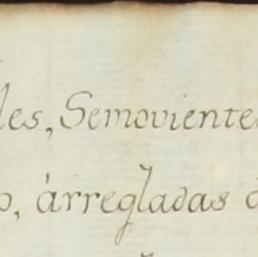 les, Semoviente
o, árregladas d